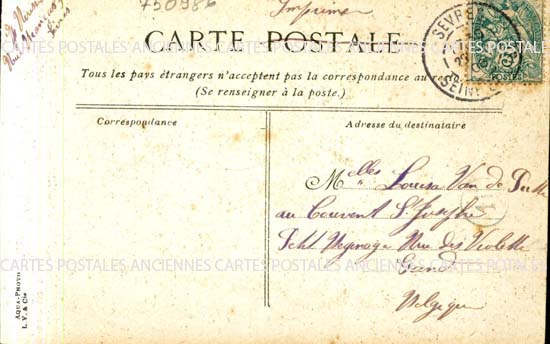 750986
Imprimé
CARTE POSTALE
Tous les pays étrangers n'acceptent pas la correspondance au
(Se renseigner à la poste.)
Correspondance
Adresse du destinataire
SEVRES
SEINE
POSTES
Melles Louisa Van de
au Couvent St Joseph
Rue des Violettes
Gand
Belgique
CARTES POSTALES ANCIENNES CARTES POSTALES ANCIENNES CARTES POSTALES
CARTES POSTALES ANCIENNES CARTES POSTALES ANCIENNES CARTES POSTALES
AQUA-PHOTO
L. V. & Cie